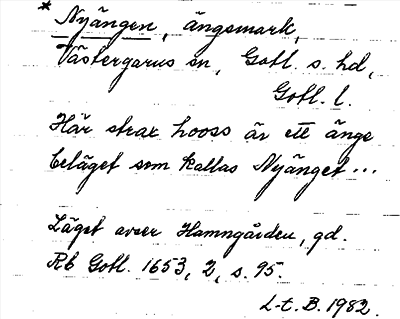 * Nyängen, ängsmark,
Västergarns sn, Gotl. s. hd,
Gotl. l.
Här strax hooss är ett änge
beläget som kallas Nyänget...
Läget avser Hamngården, gd.
Rb Gotl. 1653, 2, s. 95.
L-t. B. 1982.